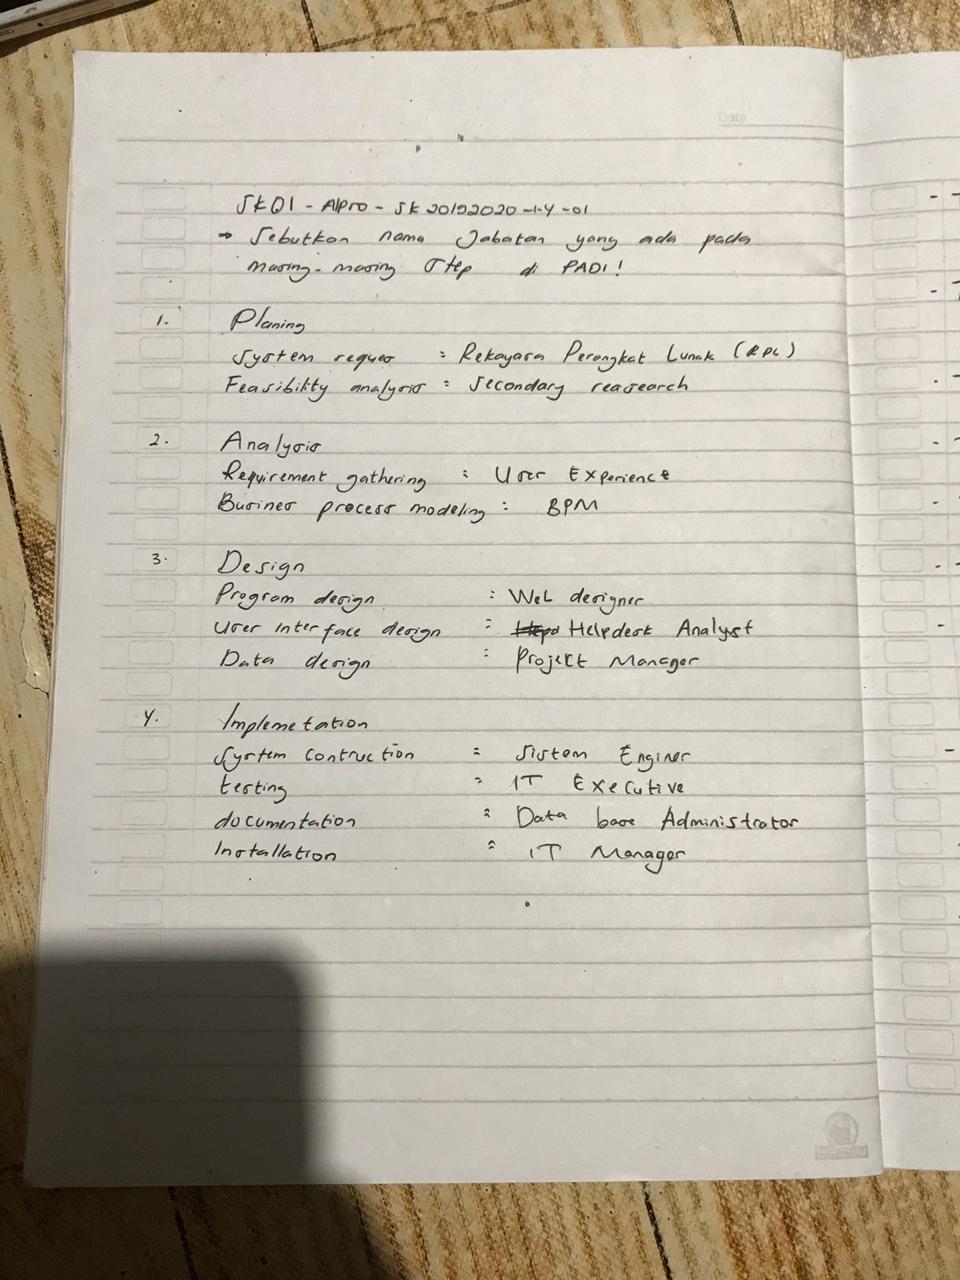 Date
SK01 - Alpro - SK20192020-1.4-01
→ Sebutkan nama Jabatan yang ada pada
masing-masing Step di PADI!
1. Planing
System reques : Rekayasa Perangkat Lunak (RPL)
Feasibility analysis : Secondary reasearch
2. Analysis
Requirement gathering : User Experience
Busines process modeling : BPM
3. Design
Program design : Web designer
User interface design : Helpdesk Analyst
Data design : Project Manager
4. Implemetation
System contruction : Sistem Enginer
testing : IT Executive
documentation : Data base Administrator
Installation : IT Manager